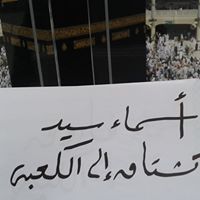 أسماء سيد
تشتاق إلى الكعبة